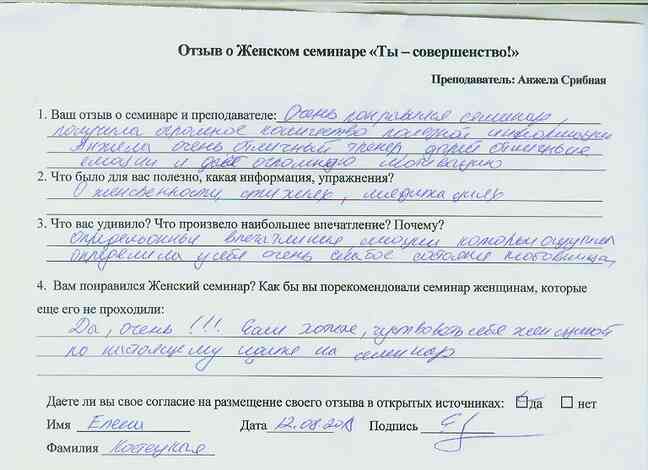 Отзыв о Женском семинаре «Ты – совершенство!»
Преподаватель: Анжела Срибная
1. Ваш отзыв о семинаре и преподавателе: Очень понравился семинар,
получила огромное количество полезной информации
Анжела очень отличный тренер, дарит отличные
эмоции и даёт огромную мотивацию
2. Что было для вас полезно, какая информация, упражнения?
О женственности,
3. Что вас удивило? Что произвело наибольшее впечатление? Почему?
впечатления эмоции которые
определила у себя очень слабое состояние
4. Вам понравился Женский семинар? Как бы вы порекомендовали семинар женщинам, которые
еще его не проходили:
Да, очень !!! Если хотите, чувствовать себя женщиной
по настоящему идите на семинар
Даете ли вы свое согласие на размещение своего отзыва в открытых источниках: да нет
Имя Елена Дата 12.08.2018 Подпись
Фамилия